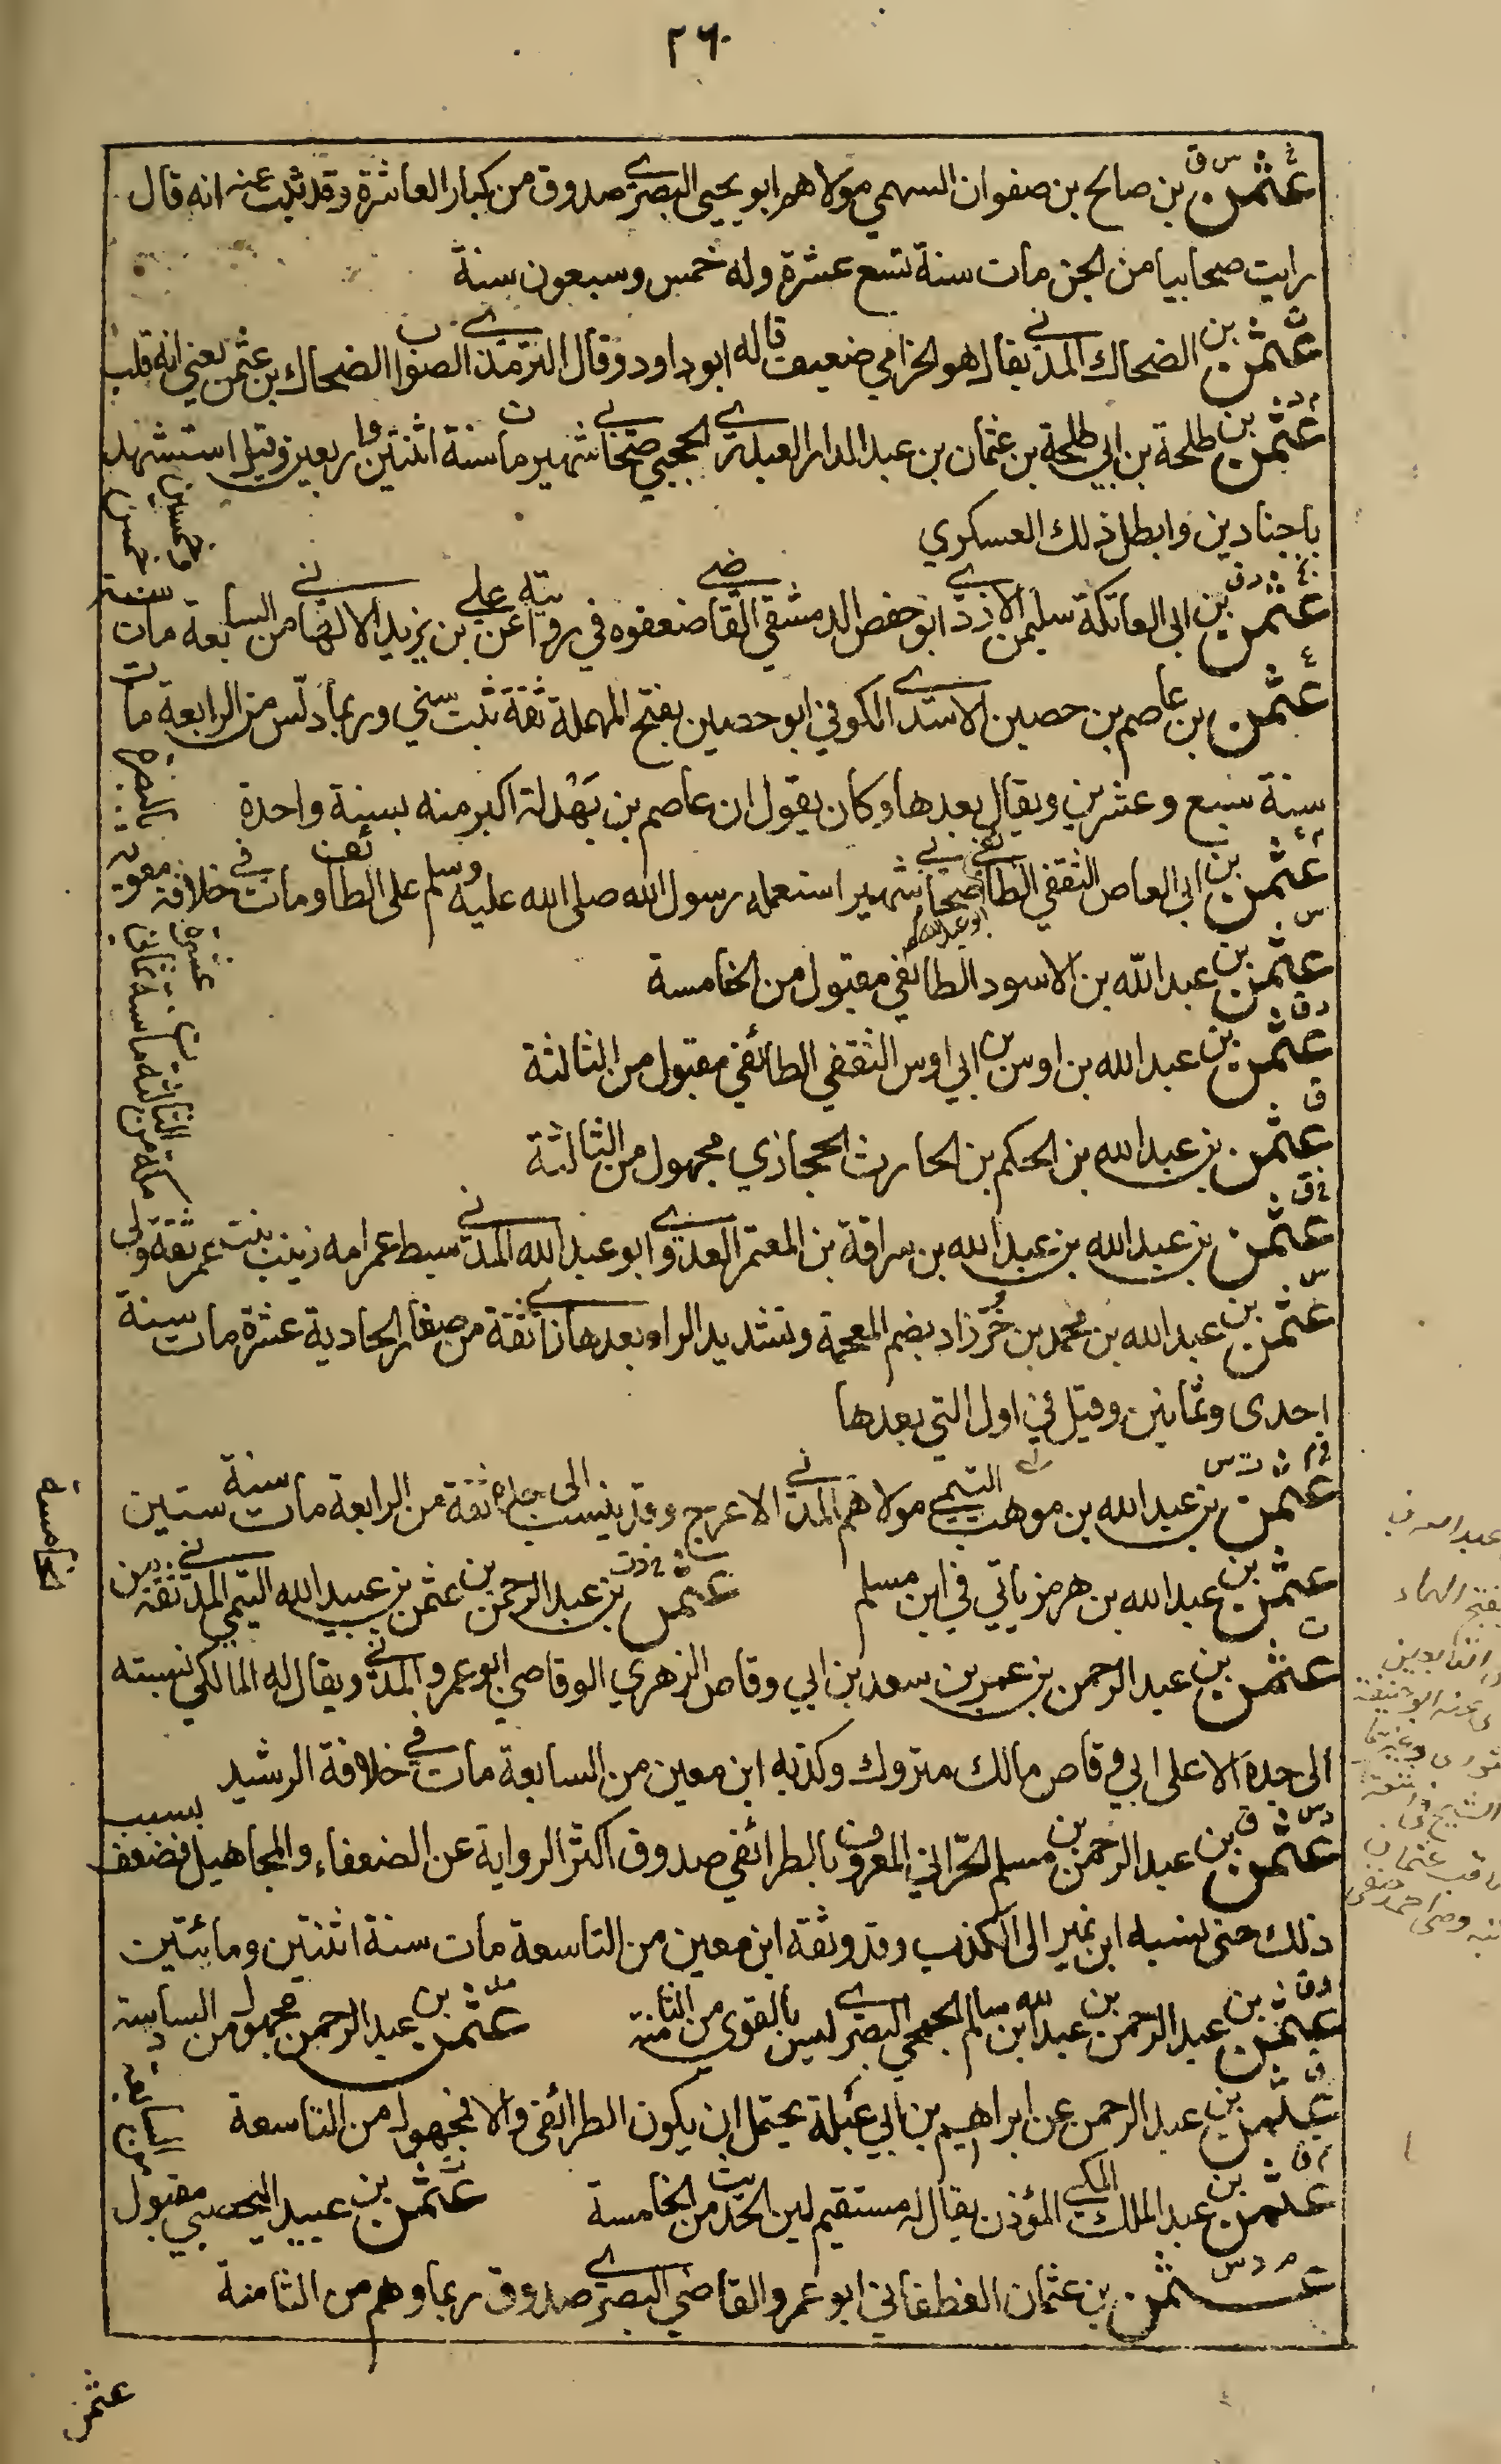 ٢٦٠
عثمن بن صالح بن صفوان السهمي مولاهم ابو يحيى البصري صدوق من كبار العاشرة وقد ثبت عنه انه قال
رايت صحابيا من الجن مات سنة تسع عشرة وله خمس وسبعون سنة
عثمن بن الضحاك المدني يقال هو الحزامي ضعيف قاله ابو داود وقال الترمذي الصواب الضحاك بن عثمن يعني انه قلب
عثمن بن طلحة بن ابي طلحة بن عثمان بن عبد الدار العبدري الحجبي صحابي شهير مات سنة اثنتين واربعين وقيل استشهد
باجنادين وابطل ذلك العسكري
عثمن بن ابي العاتكة سليمن الازدي ابو حفص الدمشقي القاضي ضعفوه في روايته عن علي بن يزيد الالهاني من السابعة مات سنة خمس وخمسين
عثمن بن عاصم بن حصين الاسدي الكوفي ابو حصين بفتح المهملة ثقة ثبت سني وربما دلس من الرابعة مات
سنة سبع وعشرين ويقال بعدها وكان يقول ان عاصم بن بهدلة اكبر منه بسنة واحدة
عثمن بن ابي العاص الثقفي الطائفي ابو عبد الله صحابي شهير استعمله رسول الله صلى الله عليه وسلم على الطائف ومات في خلافة معوية بالبصرة
عثمن بن عبد الله بن الاسود الطائفي مقبول من الخامسة
عثمن بن عبد الله بن اوس بن ابي اوس الثقفي الطائفي مقبول من الثالثة
عثمن بن عبد الله بن الحكم بن الحارث الحجازي مجهول من الثالثة
عثمن بن عبد الله بن عبد الله بن سراقة بن المعتمر العدوي ابو عبد الله المدني سبط عمر امه زينب بنت عمر ثقة ولي
مكة من الثالثة مات سنة ثماني عشرة
عثمن بن عبد الله بن محمد بن خرزاد بضم المعجمة وتشديد الراء بعدها زاي ثقة من صغار الحادية عشرة مات سنة
احدى وثمانين وقيل في اول التي بعدها
عثمن بن عبد الله بن موهب التيمي مولاهم المدني الاعرج وقد ينسب الى جده ثقة من الرابعة مات سنة ستين
عثمن بن عبد الله بن هرمز ياتي في ابن مسلم
عثمن بن عبد الرحمن بن عثمن بن عبيد الله التيمي المدني ثقة من
الخامسة
عثمن بن عبد الرحمن بن عمر بن سعد بن ابي وقاص الزهري الوقاصي ابو عمرو المدني ويقال له المالكي نسبته
الى جده الاعلى ابي وقاص مالك متروك وكذبه ابن معين من السابعة مات في خلافة الرشيد
عثمن بن عبد الرحمن بن مسلم الحراني المعروف بالطرائفي صدوق اكثر الرواية عن الضعفاء والمجاهيل فضعف بسبب
ذلك حتى نسبه ابن نمير الى الكذب وقد وثقه ابن معين من التاسعة مات سنة اثنتين ومائتين
عثمن بن عبد الرحمن بن عبد الله بن سالم الجمحي البصري ليس بالقوي من الثامنة
عثمن بن عبد الرحمن مجهول من السادسة
عثمن بن عبد الرحمن عن ابراهيم بن ابي عبلة يحتمل ان يكون الطرائفي والا فمجهول من التاسعة
عثمن بن عبد الملك المكي المؤذن يقال له مستقيم لين الحديث من الخامسة
عثمن بن عبيد اليحصبي مقبول
من السابعة
عثمن بن عثمان الغطفاني ابو عمرو القاضي البصري صدوق ربما وهم من الثامنة
عثمن